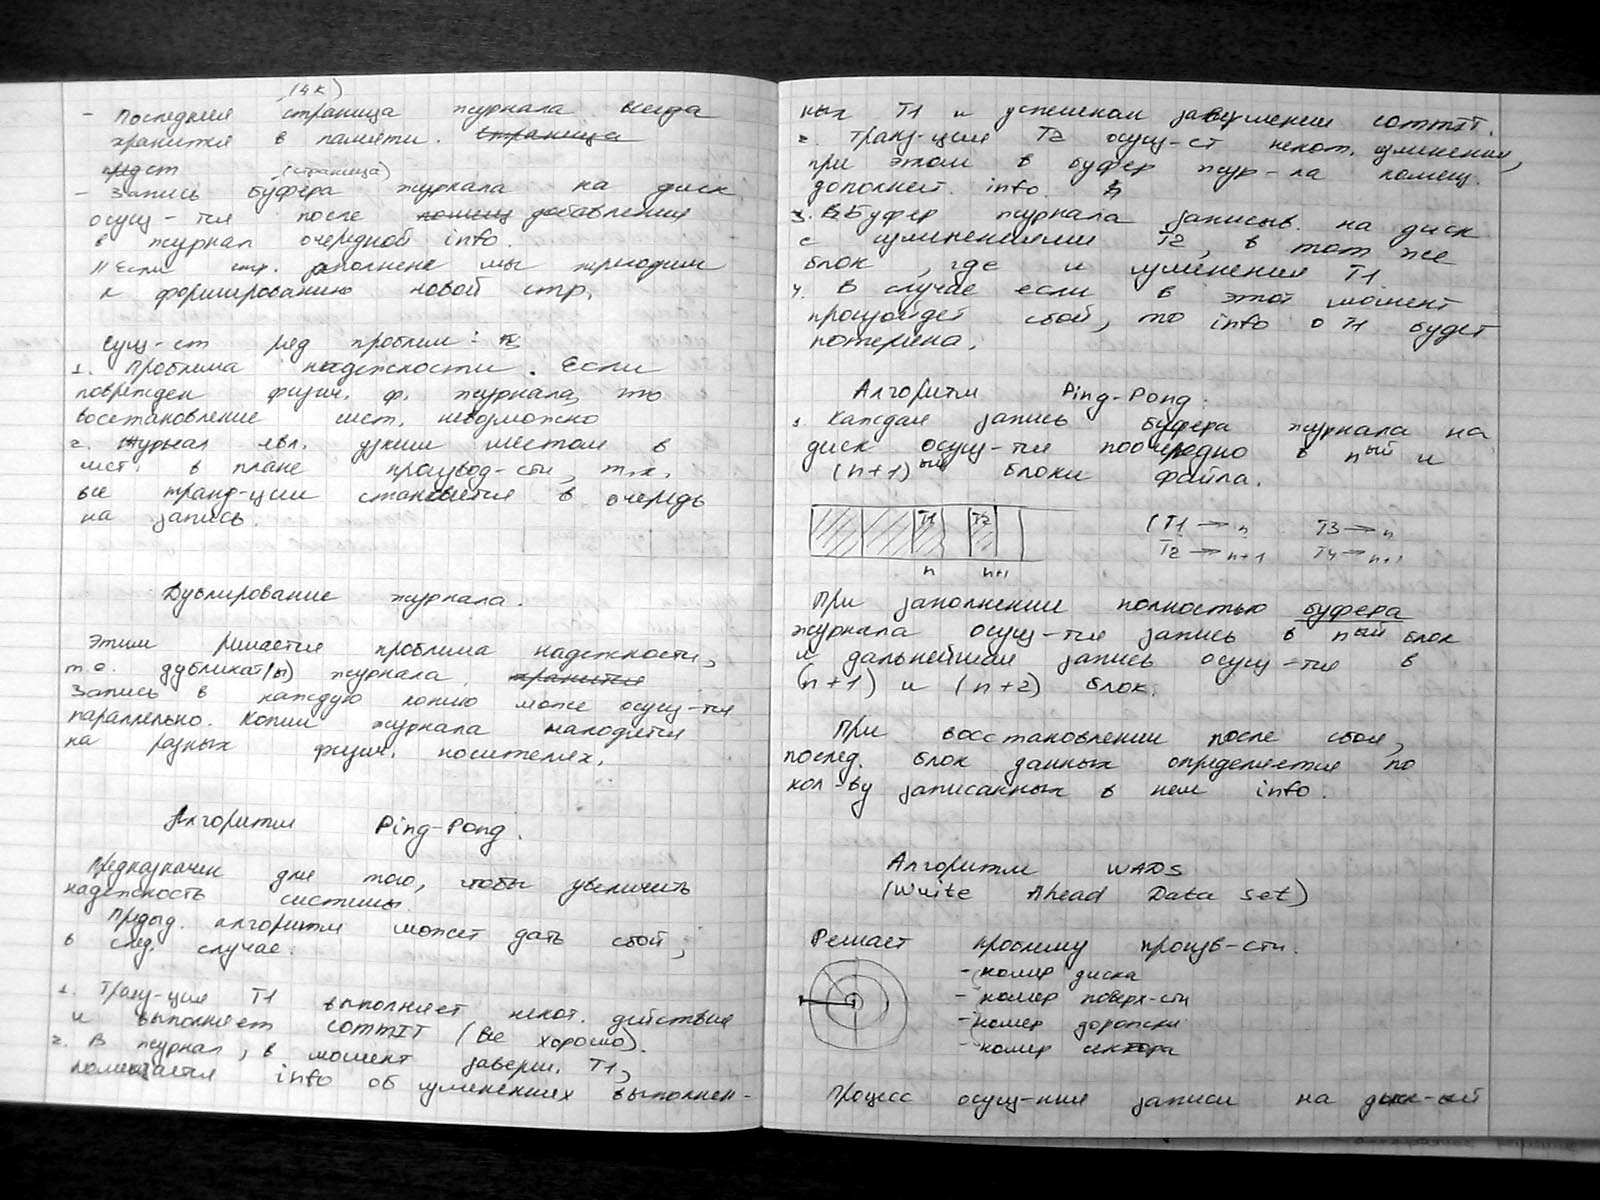 (4к)
- Последняя страница журнала всегда
хранится в памяти. страница
предст
(страница)
- Запись буфера журнала на диск
осущ-тся после помещ добавления
в журнал очередной info.
// Если стр. заполнена мы переходим
к формированию новой стр.
Сущ-ст ряд проблем:
1. Проблема надежности. Если
поврежден физич. ф. журнала, то
восстановление сист. невозможно
2. Журнал явл. узким местом в
сист. в плане производ-сти, т.к.
все транз-ции становятся в очередь
на запись.
Дублирование журнала.
Этим решается проблема надежности,
т.о. дубликат(ы) журнала. хранится
Запись в каждую копию може осущ-тся
параллельно. Копии журнала находятся
на разных физич. носителях.
Алгоритм Ping-Pong.
Предназначен для того, чтобы увеличить
надежность системы.
Предыд. алгоритм может дать сбой,
в след. случае:
1. Транз-ция T1 выполняет некот. действия
и выполняет COMMIT (все хорошо).
2. В журнал, в момент заверш. T1,
помещается info об изменениях выполнен-
ных T1 и успешном завершении COMMIT.
2. Транз-ция T2 осущ-ст некот. изменения,
при этом в буфер жур-ла помещ.
дополнит. info.
3. Буфер журнала записыв. на диск
с изменениями T2, в тот же
блок, где и изменения T1
4. В случае если в этот момент
произойдет сбой, то info о T1 будет
потеряна.
Алгоритм Ping-Pong.
1. Каждая запись буфера журнала на
диск осущ-тся поочередно в nый и
(n+1)ый блоки файла.
T1 T2
n n+1
(T1 → n T3 → n
T2 → n+1 T4 → n+1
При заполнении полностью буфера
журнала осущ-тся запись в nый блок
и дальнейшая запись осущ-тся в
(n+1) и (n+2) блок.
При восстановлении после сбоя,
послед. блок данных определяется по
кол-ву записанных в нем info.
Алгоритм WADS
(Write Ahead Data Set)
Решает проблему произв-сти.
- номер диска
- номер поверх-сти
- номер дорожки
- номер сектора
Процесс осущ-ния записи на